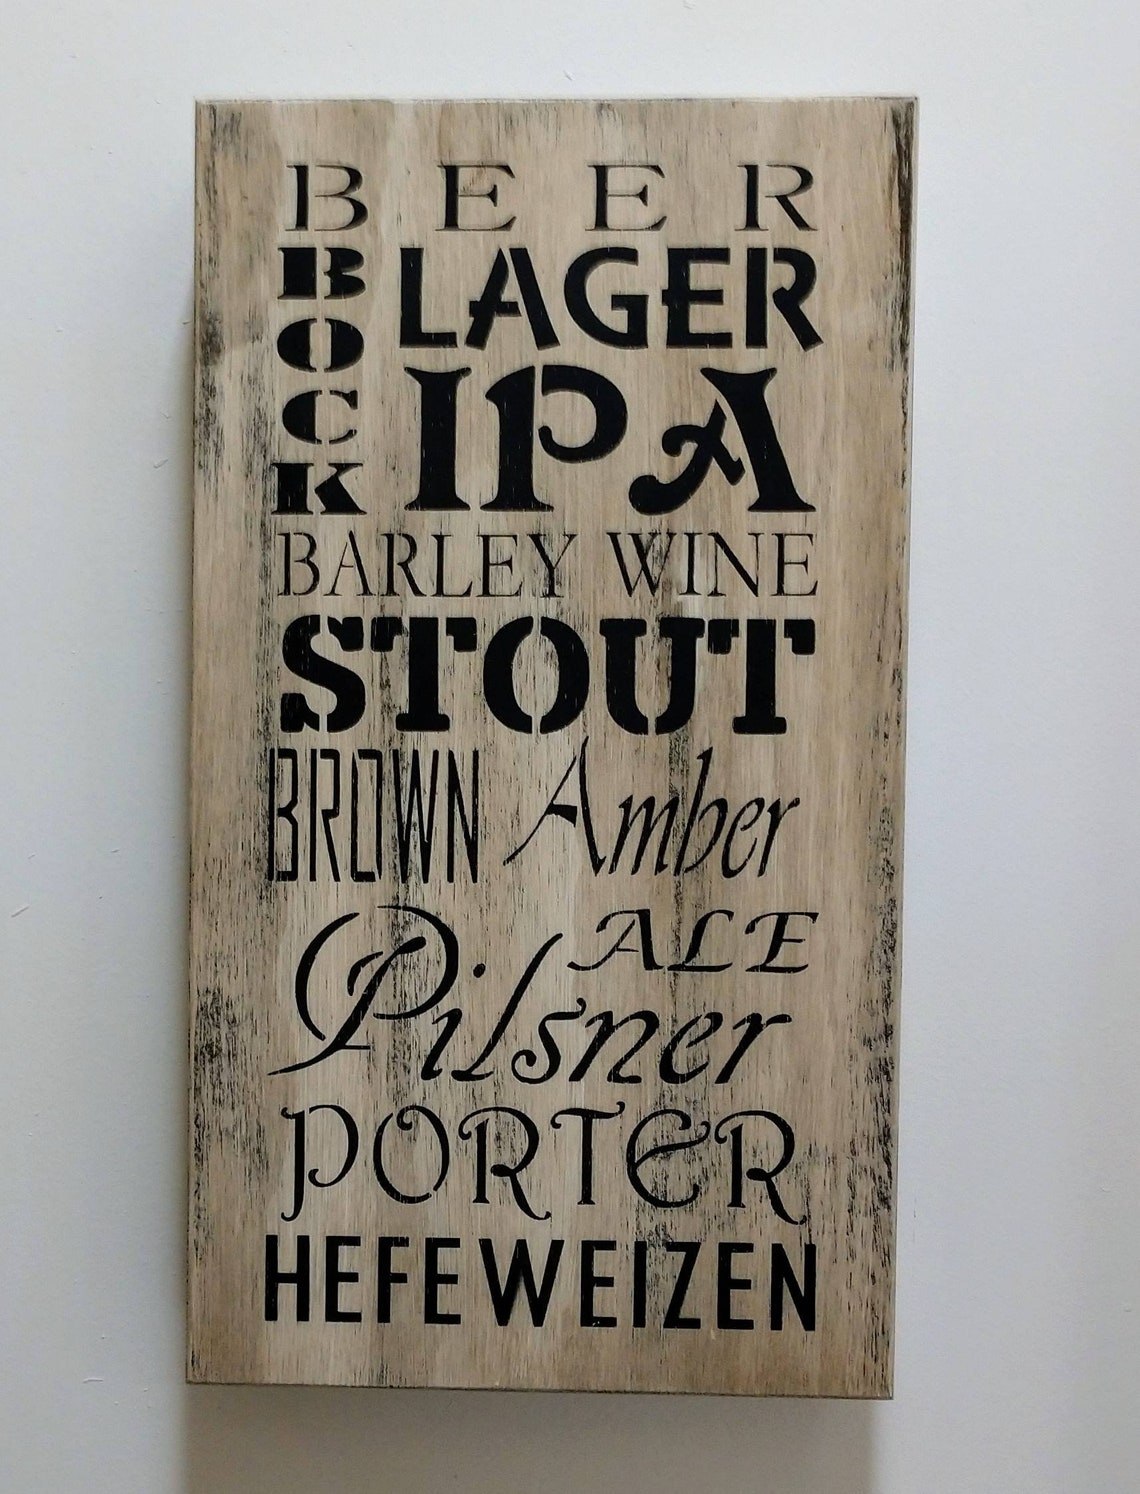 BEER
BOCK
LAGER
IPA
BARLEY WINE
STOUT
BROWN Amber
ALE
Pilsner
PORTER
HEFEWEIZEN